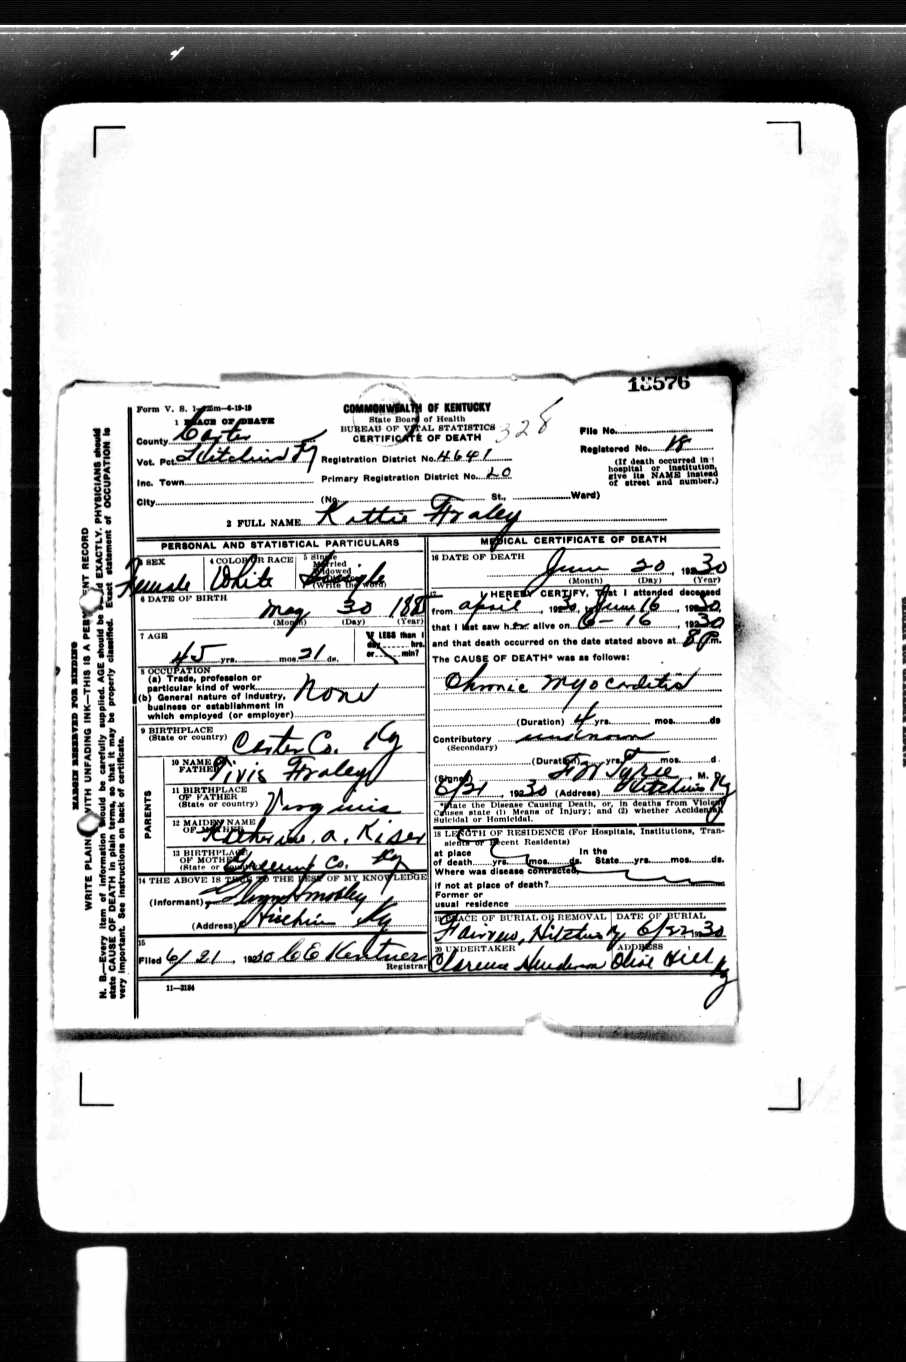 13576
Form V. S. 1- -4-19-19
COMMONWEALTH OF KENTUCKY
State Board of Health
BUREAU OF VITAL STATISTICS
CERTIFICATE OF DEATH
328
1 PLACE OF DEATH
County Carter
Vot. Pct. Hitchins Ky
Inc. Town
City
Registration District No. 4641
Primary Registration District No. 20
(No. St., Ward)
File No.
Registered No. 18
(If death occurred in
hospital or institution,
give its NAME instead
of street and number.)
2 FULL NAME Kattie Fraley
PERSONAL AND STATISTICAL PARTICULARS
3 SEX
Female
4 COLOR OR RACE
White
5 Single
Married
Widowed
(Write the word)
Single
6 DATE OF BIRTH
May 30 188
(Month) (Day) (Year)
7 AGE
45 yrs. mos. 21 ds.
If LESS than 1
day hrs.
or min?
8 OCCUPATION
(a) Trade, profession or
particular kind of work
(b) General nature of industry,
business or establishment in
which employed (or employer)
None
9 BIRTHPLACE
(State or country) Carter Co. Ky
PARENTS
10 NAME OF
FATHER Fraley
11 BIRTHPLACE
OF FATHER
(State or country) Virginia
12 MAIDEN NAME
OF MOTHER Katherine. A. Kiser
13 BIRTHPLACE
OF MOTHER
(State or country) Greenup Co. Ky
14 THE ABOVE IS TRUE TO THE BEST OF MY KNOWLEDGE
(Informant) Mobley
(Address) Hitchins Ky
15
Filed 6/21, 1930 C E Kentner
Registrar
11—3184
MEDICAL CERTIFICATE OF DEATH
16 DATE OF DEATH
June 20, 1930
(Month) (Day) (Year)
17 I HEREBY CERTIFY, that I attended deceased
from April, 1930, to June 16, 1930,
that I last saw her alive on 6-16, 1930
and that death occurred on the date stated above at 8 P m.
The CAUSE OF DEATH* was as follows:
Chronic Myocarditis
(Duration) 4 yrs. mos. ds
Contributory unknown
(Secondary)
(Duration) yrs. mos. d
(Signed) M.
6/21, 1930 (Address) Hitchins Ky
*State the Disease Causing Death, or, in deaths from Violent
Causes state (1) Means of Injury; and (2) whether Accidental,
Suicidal or Homicidal.
18 LENGTH OF RESIDENCE (For Hospitals, Institutions, Tran-
sients or Recent Residents)
at place In the
of death yrs. mos. ds. State yrs. mos. ds.
Where was disease contracted,
if not at place of death?
Former or
usual residence
19 PLACE OF BURIAL OR REMOVAL
Fairview, Hitchins Ky
DATE OF BURIAL
6/22 1930
20 UNDERTAKER
Clarence Henderson
ADDRESS
Olive Hill Ky
MARGIN RESERVED FOR BINDING
WRITE PLAINLY WITH UNFADING INK—THIS IS A PERMANENT RECORD
N. B.—Every item of information should be carefully supplied. AGE should be stated EXACTLY. PHYSICIANS should
state CAUSE OF DEATH in plain terms, so that it may be properly classified. Exact statement of OCCUPATION is
very important. See instructions on back of certificate.